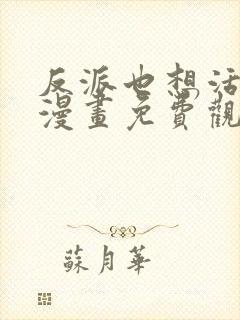 反派也想活
漫畫免費觀
蘇月華